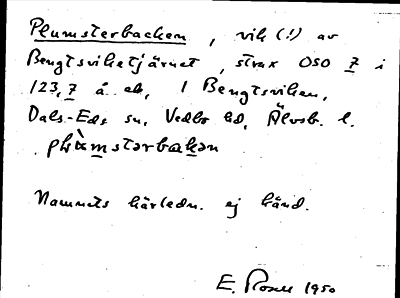 Plumsterbacken, vik (!) av
Bengtsviketjärnet, strax OSO 7 i
123,7 å ek, 1 Bengtsviken,
Dals-Eds sn, Vedbo hd, Älvsb. l.
plùmstərbakən
Namnets härledn. ej känd.
E. Rosell 1950